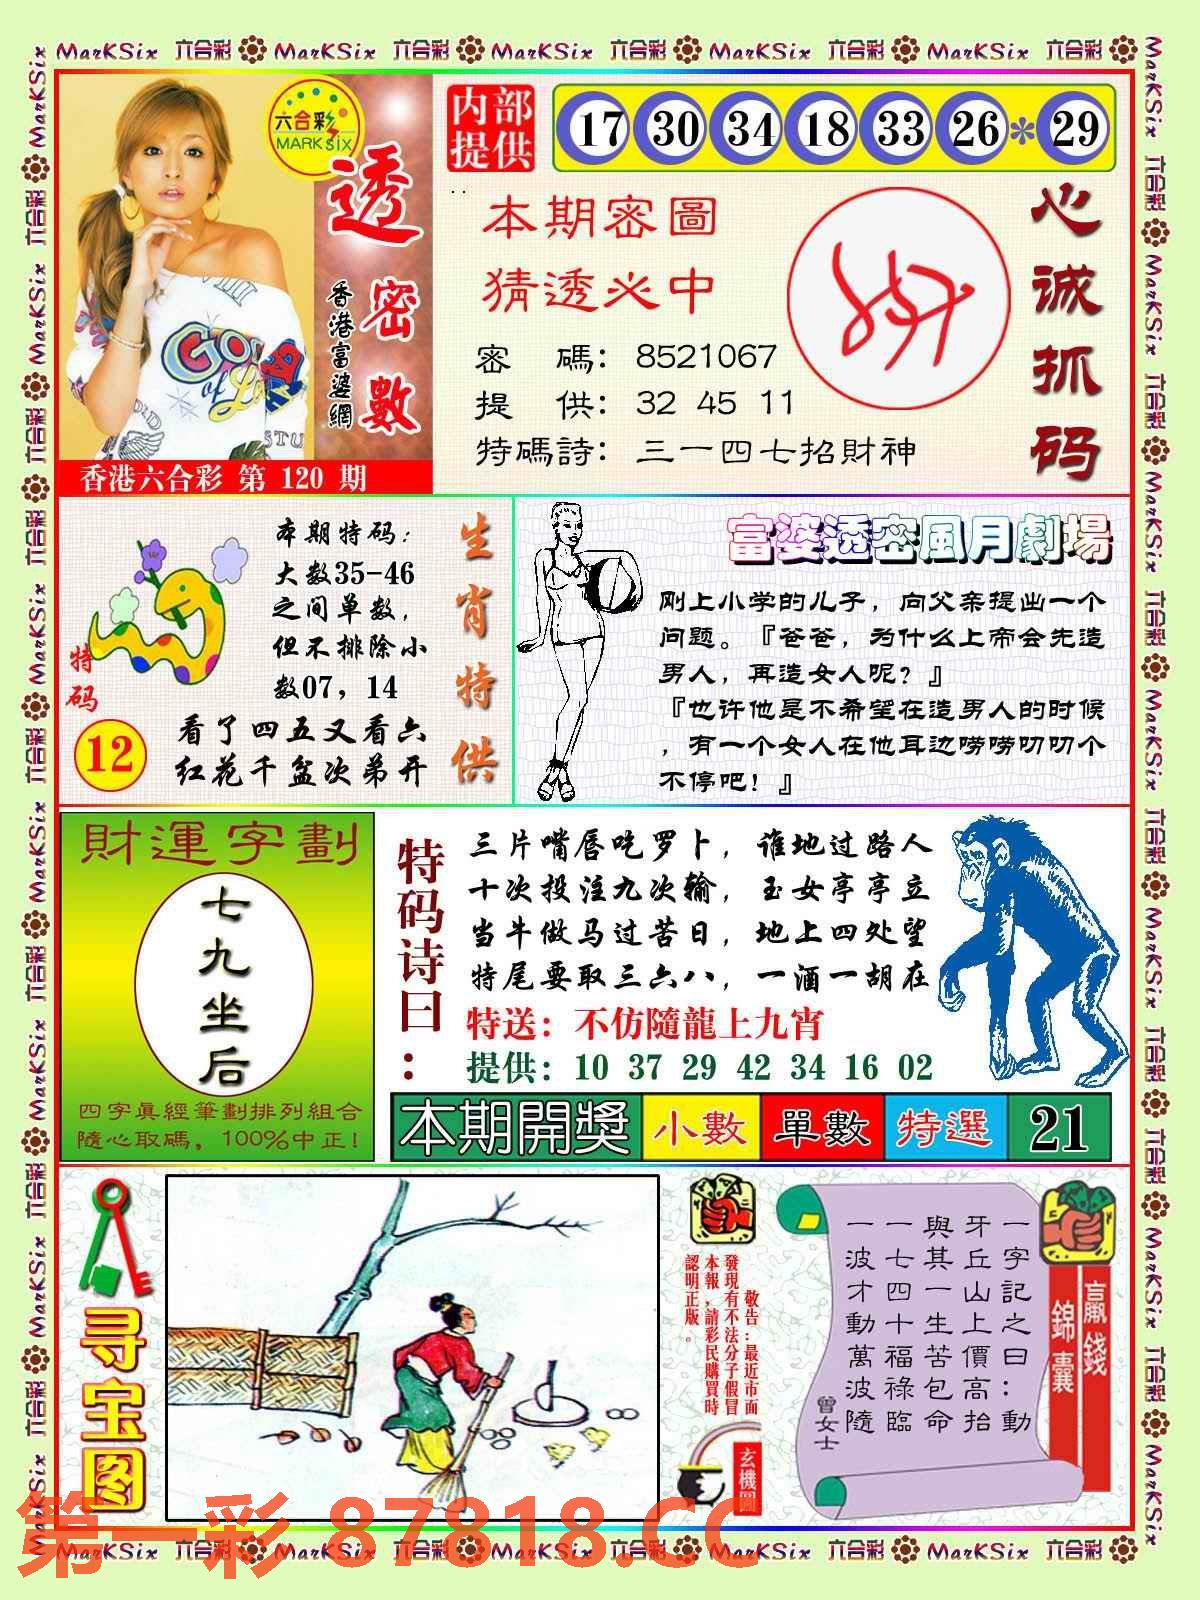 MarKSix 六合彩 MarKSix 六合彩 MarKSix 六合彩 MarKSix 六合彩 MarKSix 六合彩
六合彩
MARK SIX
透密數
香港富婆網
香港六合彩 第 120 期
内部
提供
17 30 34 18 33 26 * 29
本期密圖
猜透必中
密 碼: 8521067
提 供: 32 45 11
特碼詩: 三一四七招財神
心诚抓码
本期特码:
大数35-46
之间单数,
但不排除小
数07, 14
生肖特供
特码
12
看了四五又看六
红花千盆次弟开
富婆透密風月劇場
刚上小学的儿子，向父亲提出一个
问题。『爸爸，为什么上帝会先造
男人，再造女人呢？』
『也许他是不希望在造男人的时候
，有一个女人在他耳边唠唠叨叨个
不停吧！』
財運字劃
七九坐后
四字眞經筆劃排列組合
隨心取碼，100%中正!
特码诗曰:
三片嘴唇吃罗卜，谁地过路人
十次投注九次输，玉女亭亭立
当牛做马过苦日，地上四处望
特尾要取三六八，一酒一胡在
特送: 不仿隨龍上九宵
提供: 10 37 29 42 34 16 02
本期開獎 小數 單數 特選 21
寻宝图
敬告:最近市面
發現有不法分子假冒
本報,請彩民購買時
認明正版。
玄機圖
一字記之曰:動
牙丘山上價高抬
與其一生苦包命
一七四十福祿臨
一波才動萬波隨
曾女士
贏錢
錦囊
第一彩 87818.CC
MarKSix 六合彩 MarKSix 六合彩 MarKSix 六合彩 MarKSix 六合彩 MarKSix 六合彩